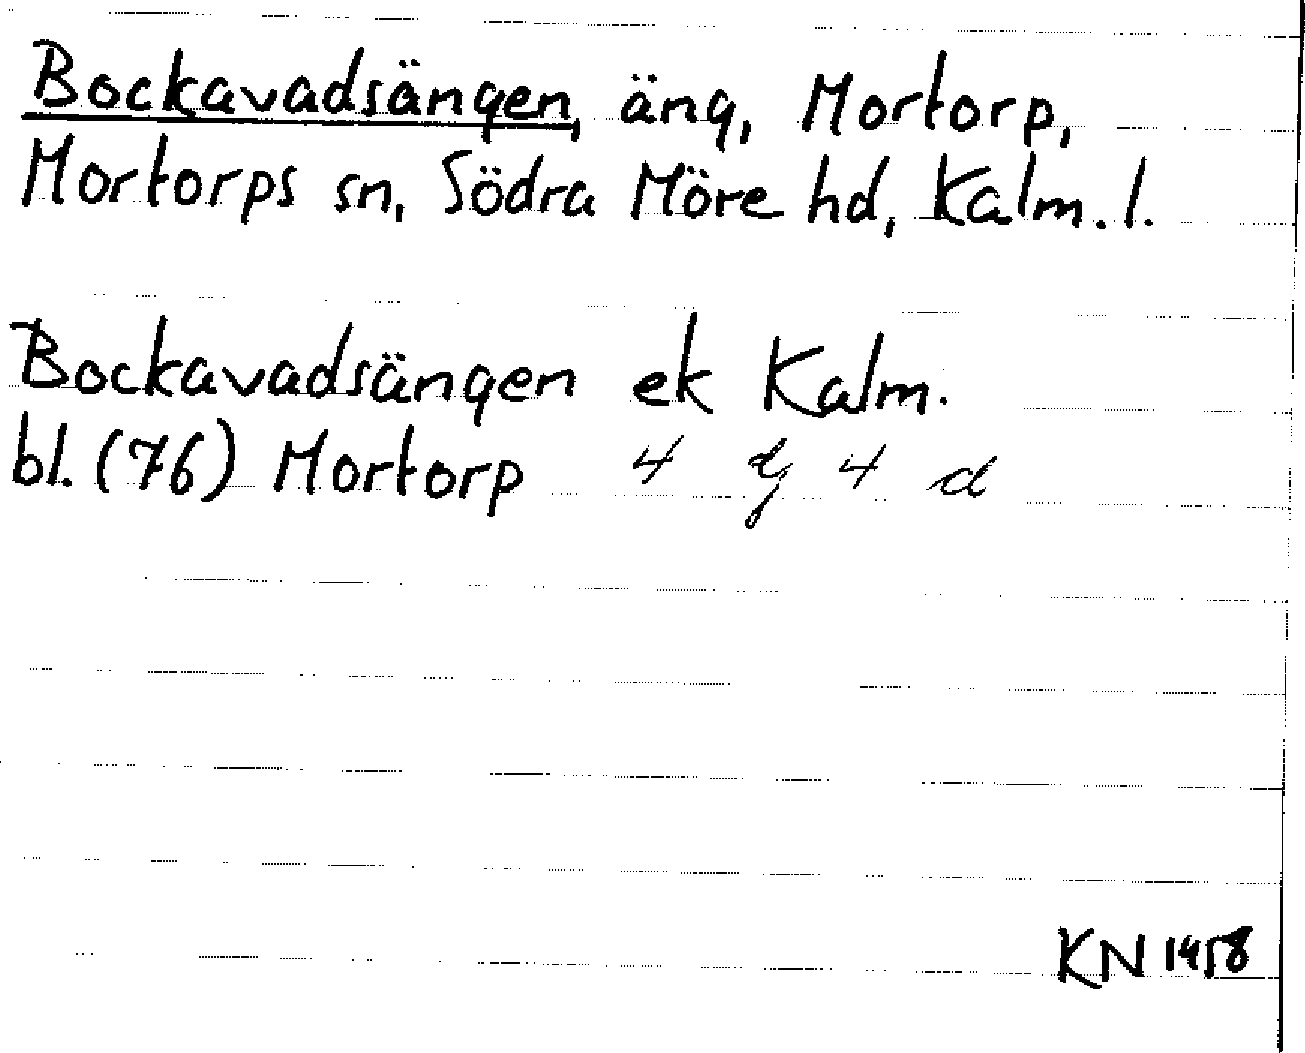 Bockavadsängen, äng, Mortorp,
Mortorps sn, Södra Möre hd, Kalm. l.
Bockavadsängen ek Kalm.
bl. (76) Mortorp 4 g 4 d
KN 1958